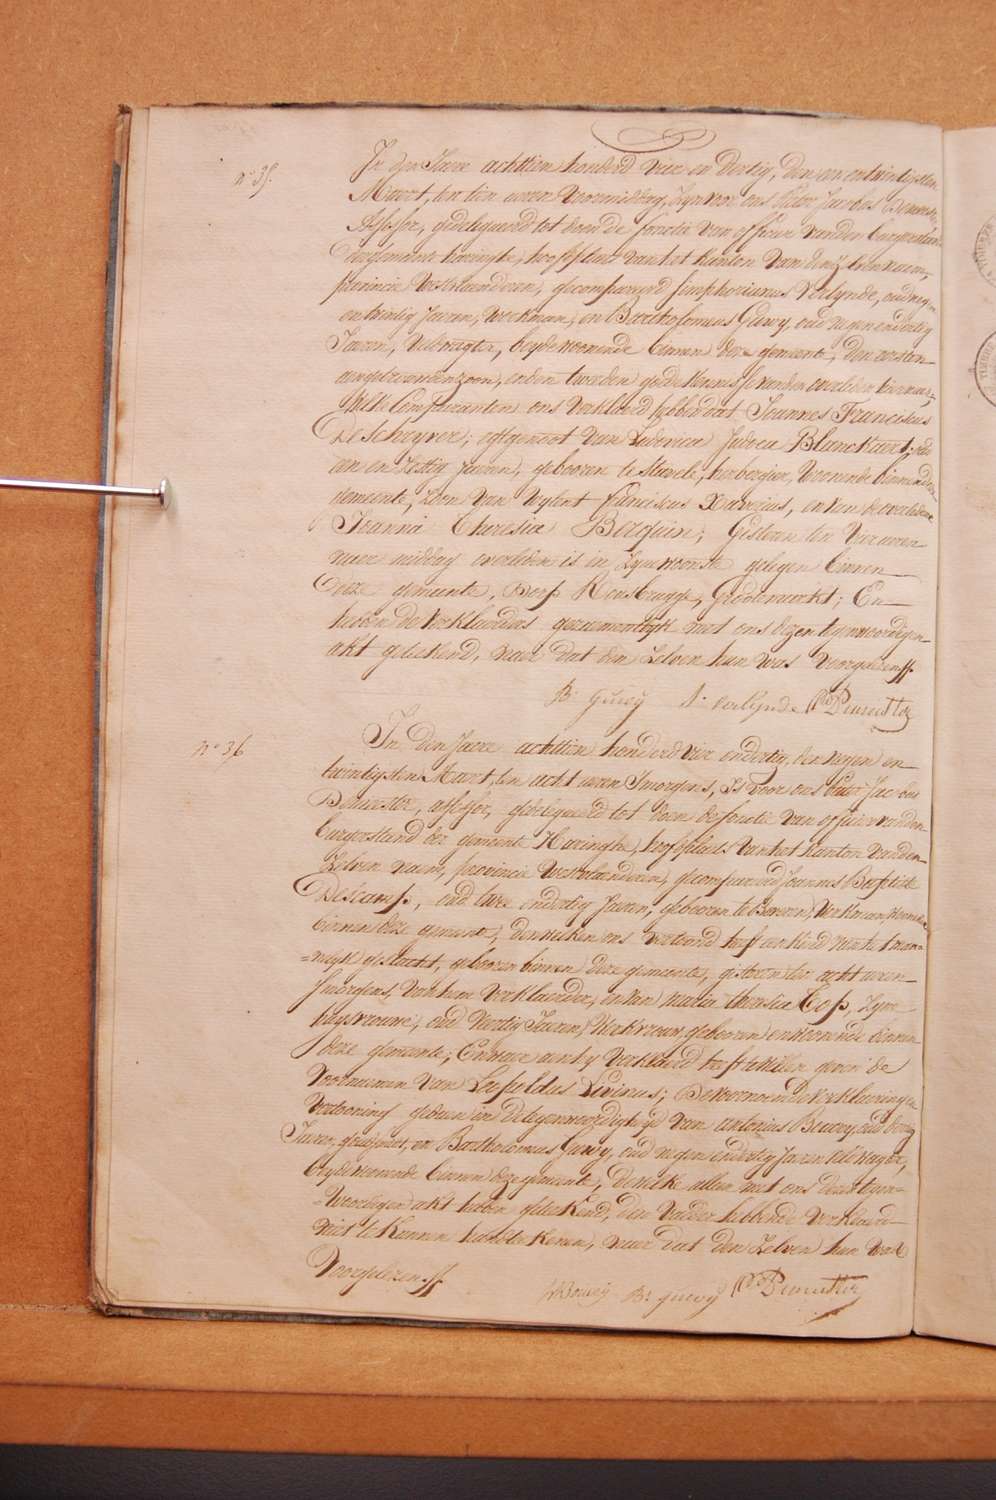 N° 35.
In den Jaere achttien honderd vier en dertig, den een en twintigsten
Maart, ten tien uren voormiddag, Zyn voor ons Pieter Jacobus
Assessor, gedelegueerd tot doen de fonctie van officier van den burgerstand
der gemeente Haringhe, hoofdplaets van het kanton van denzelven naem,
provincie Westvlaenderen, gecompareerd Simphorianus Verlynde, oud neg-
entwintig Jaeren, werkman, en Bartholomeus Gussey, oud negen en dertig
Jaeren, Veldwagter, beyde woonende binnen deze gemeente, den eersten
aengetrouwden zoon, en den tweeden goede kennis van den overleden hiernaer,
Welke Comparanten ons verklaerd hebben dat Joannes Franciscus
De Schryver, egtgenoot van Ludovica Judoca Blanckaert, oud
een en zestig Jaeren, gebooren te Stavele, herbergier, woonende binnen deze
gemeente, zoon van wylent Franciscus Xaverius, en van de overledene
Joanna Theresia Berquin; Gisteren ten vier uren
naer middag overleden is in zyn woonste gelegen binnen
deze gemeente, Dorp Rousbrugge, Groote markt; En
hebben de verklaerders gezamentlyk met ons dezen tegenwoordigen
akt geteekend, naer dat den zelven hun was voorgelezen ff.
B. Gussey S. verlynde
N° 36
In den Jaere achttien honderd vier en dertig, den negen en
twintigsten Maart, ten acht uren Smorgens, Is voor ons Pieter Jacobus
assessor, gedelegueerd tot doen de fonctie van officier van den
burgerstand der gemeente Haringhe, hoofdplaets van het kanton van den
Zelven naem, provincie Westvlaenderen, gecompareerd Joannes Baptiste
Descamps, oud twee en dertig Jaeren, gebooren te Beveren, Werkman woonende
binnen deze gemeente, den welken ons vertoond heeft een kind van het man-
=nelyk geslacht, gebooren binnen deze gemeente, gisteren ten acht uren
Smorgens, van hem verklaerder, en van maria theresia Cop, zyne
huysvrouwe, oud veertig Jaeren, Werkvrouw, gebooren en woonende binnen
deze gemeente; En waer aen hy verklaerd heeft te willen geven de
Voornaemen van Leopoldus Livinus; De voornoemde verklaering en
vertooning gedaen in de tegenwoordigheyd van antonius
Jaeren, en Bartholomeus Gussey, oud negen en dertig Jaeren veldwagter,
beyde woonende binnen deze gemeente, de welke allen met ons dezen tegen-
=woordigen akt hebben geteekend, den vader hebbende verklaerd
niet te kunnen handteekenen, naer dat den zelven hun was
Voorgelezen ff.
B. Gussey